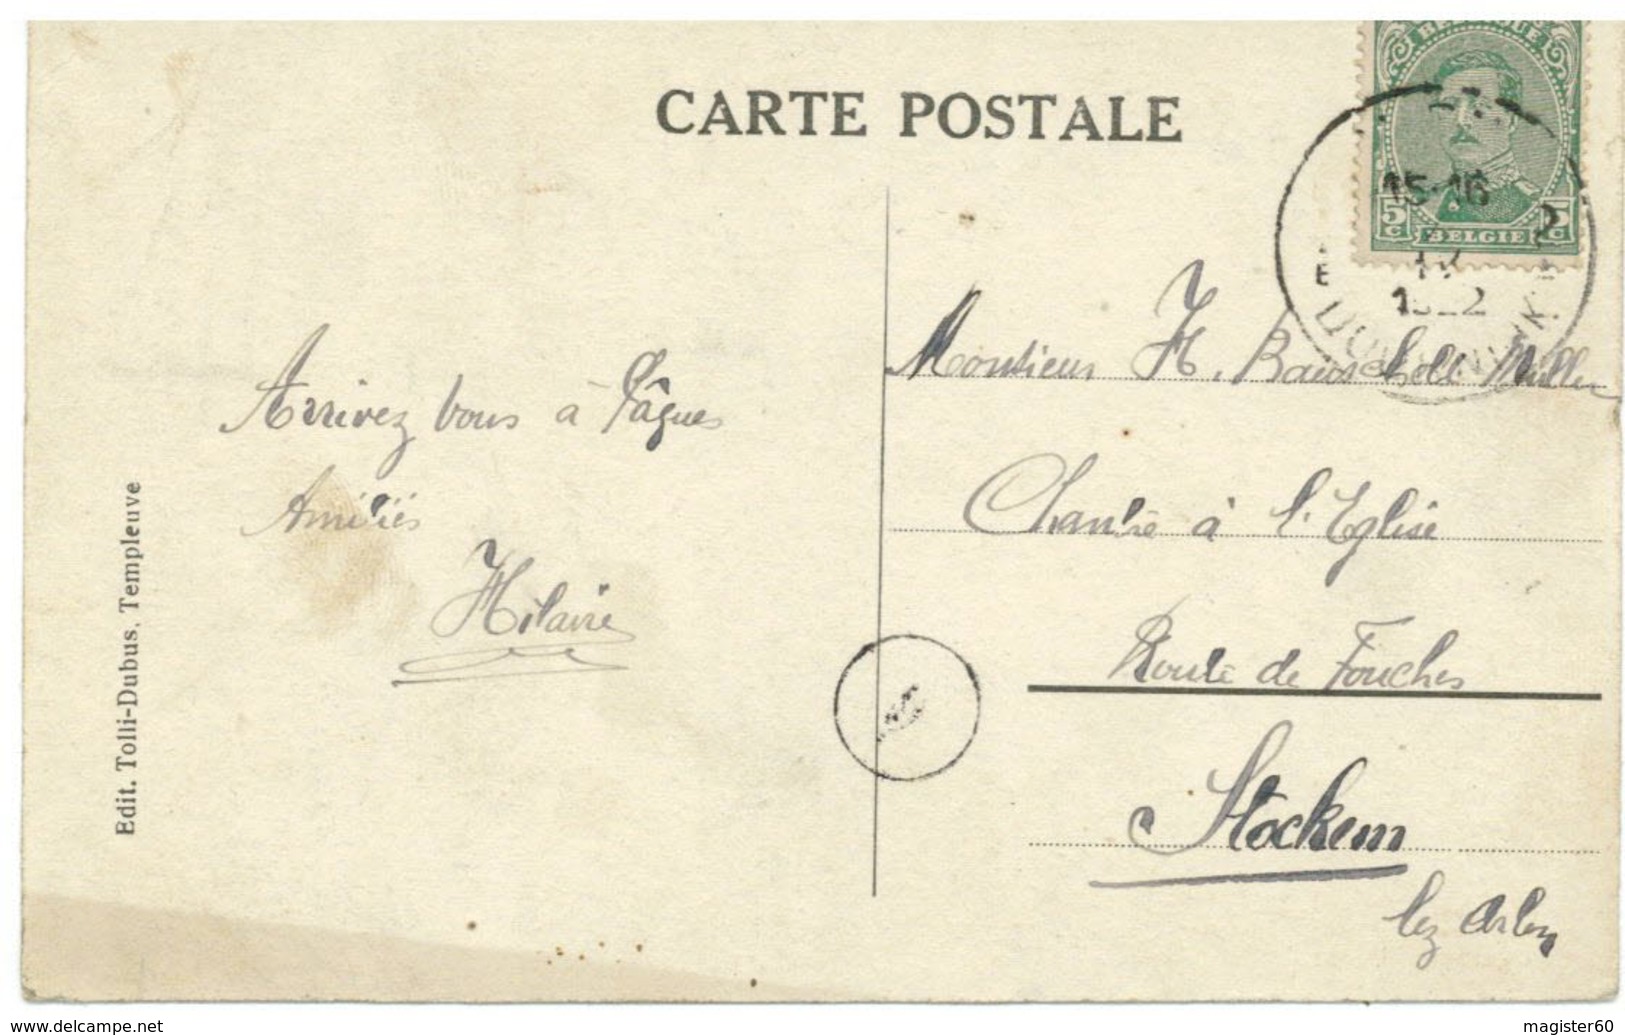 CARTE POSTALE
BELGIQUE
5 C
BELGIE
5 C
15-16
1922
Monsieur H. Bauscheld Muller
Chantre à l'Eglise
Route de Fouches
Stockem
lez Arlon
Arrivez vous à Pâques
Amitiés
Hilaire
Edit. Tolli-Dubus, Templeuve
www.delcampe.net
magister60